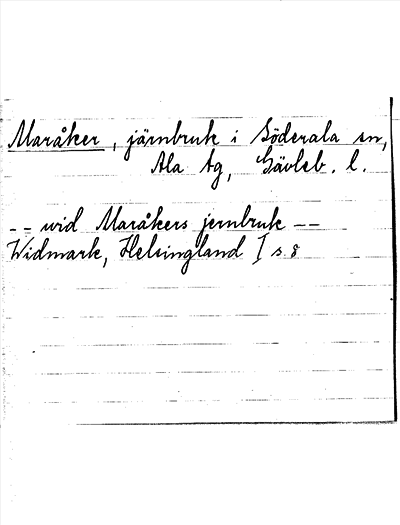 Maråker, järnbruk i Söderala sn,
Ala tg, Gävleb. l.
-- wid Maråkers jernbruk --
Widmark, Helsingland I s. 8